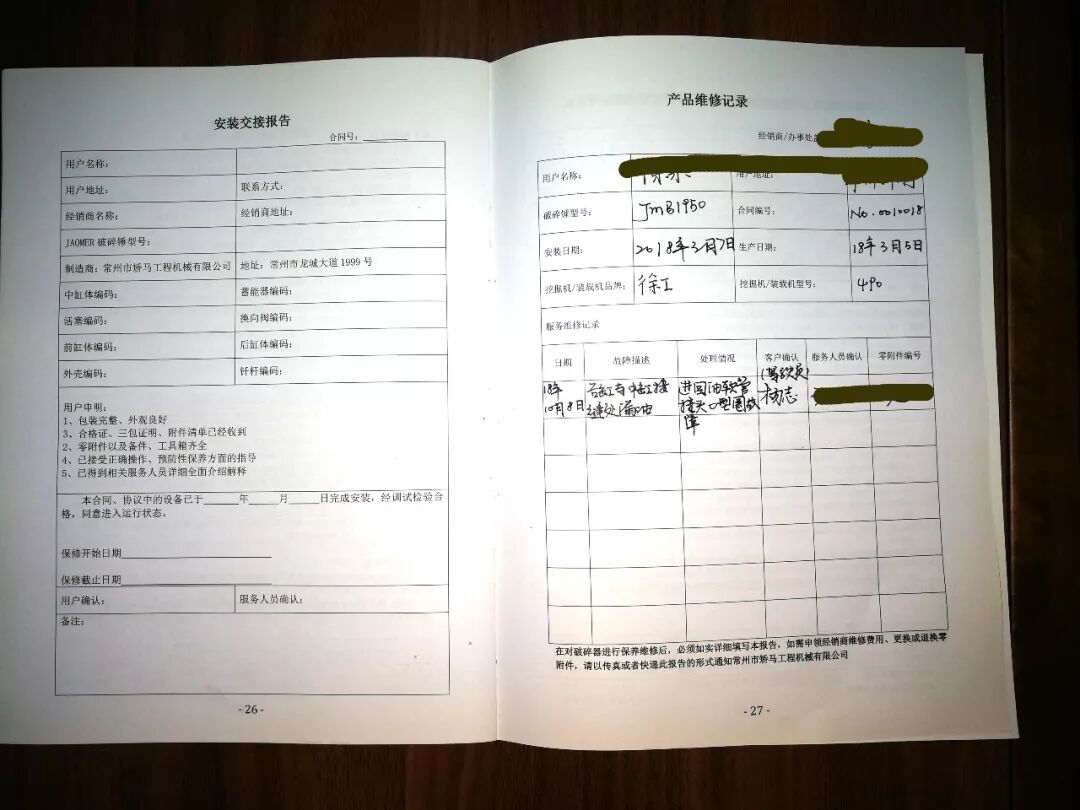 安装交接报告
合同号：
用户名称：
用户地址： 联系方式：
经销商名称： 经销商地址：
JAOMER 破碎锤型号：
制造商：常州市矫马工程机械有限公司 地址：常州市龙城大道 1999 号
中缸体编码： 蓄能器编码：
活塞编码： 换向阀编码：
前缸体编码： 后缸体编码：
外壳编码： 钎杆编码：
用户申明：
1、包装完整、外观良好
3、合格证、三包证明、附件清单已经收到
2、零附件以及备件、工具箱齐全
4、已接受正确操作、预防性保养方面的指导
5、已得到相关服务人员详细全面介绍解释
本合同、协议中的设备已于______年____月____日完成安装，经调试检验合
格，同意进入运行状态。
保修开始日期
保修截止日期
用户确认： 服务人员确认：
备注：
- 26 -
产品维修记录
经销商/办事处
用户名称： 用户地址：
破碎锤型号： JMB1950 合同编号： No.0010018
安装日期： 2018年3月7日 生产日期： 18年3月5日
挖掘机/装载机品牌： 徐工 挖掘机/装载机型号： 490
服务维修记录
日期 故障描述 处理情况 客户确认 服务人员确认 零附件编号
18年
10月8日
后缸与中缸接
缝处漏油
进回油软管
接头O型圈故
障
杨志
在对破碎器进行保养维修后，必须如实详细填写本报告，如需申领经销商维修费用、更换或退换零
附件，请以传真或者快递此报告的形式通知常州市矫马工程机械有限公司
- 27 -